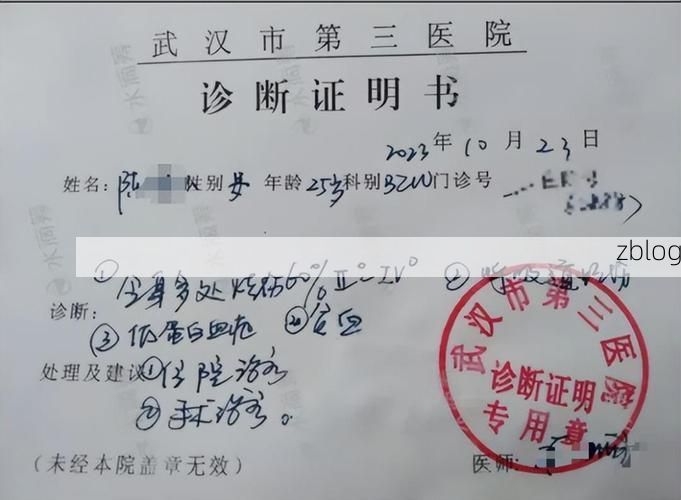 武汉市第三医院
诊断证明书
2023年10月23日
姓名：陈 性别 男 年龄 25岁 科别 BICU 门诊号
zblog
诊断：① 全身多处烧伤60% II°-IV° ② 呼吸道烧伤
③ 低蛋白血症 ④ 贫血
处理及建议 ① 住院治疗
② 手术治疗。
(未经本院盖章无效)
医师：
武汉市第三医院
诊断证明
专用章
水滴筹
水滴筹